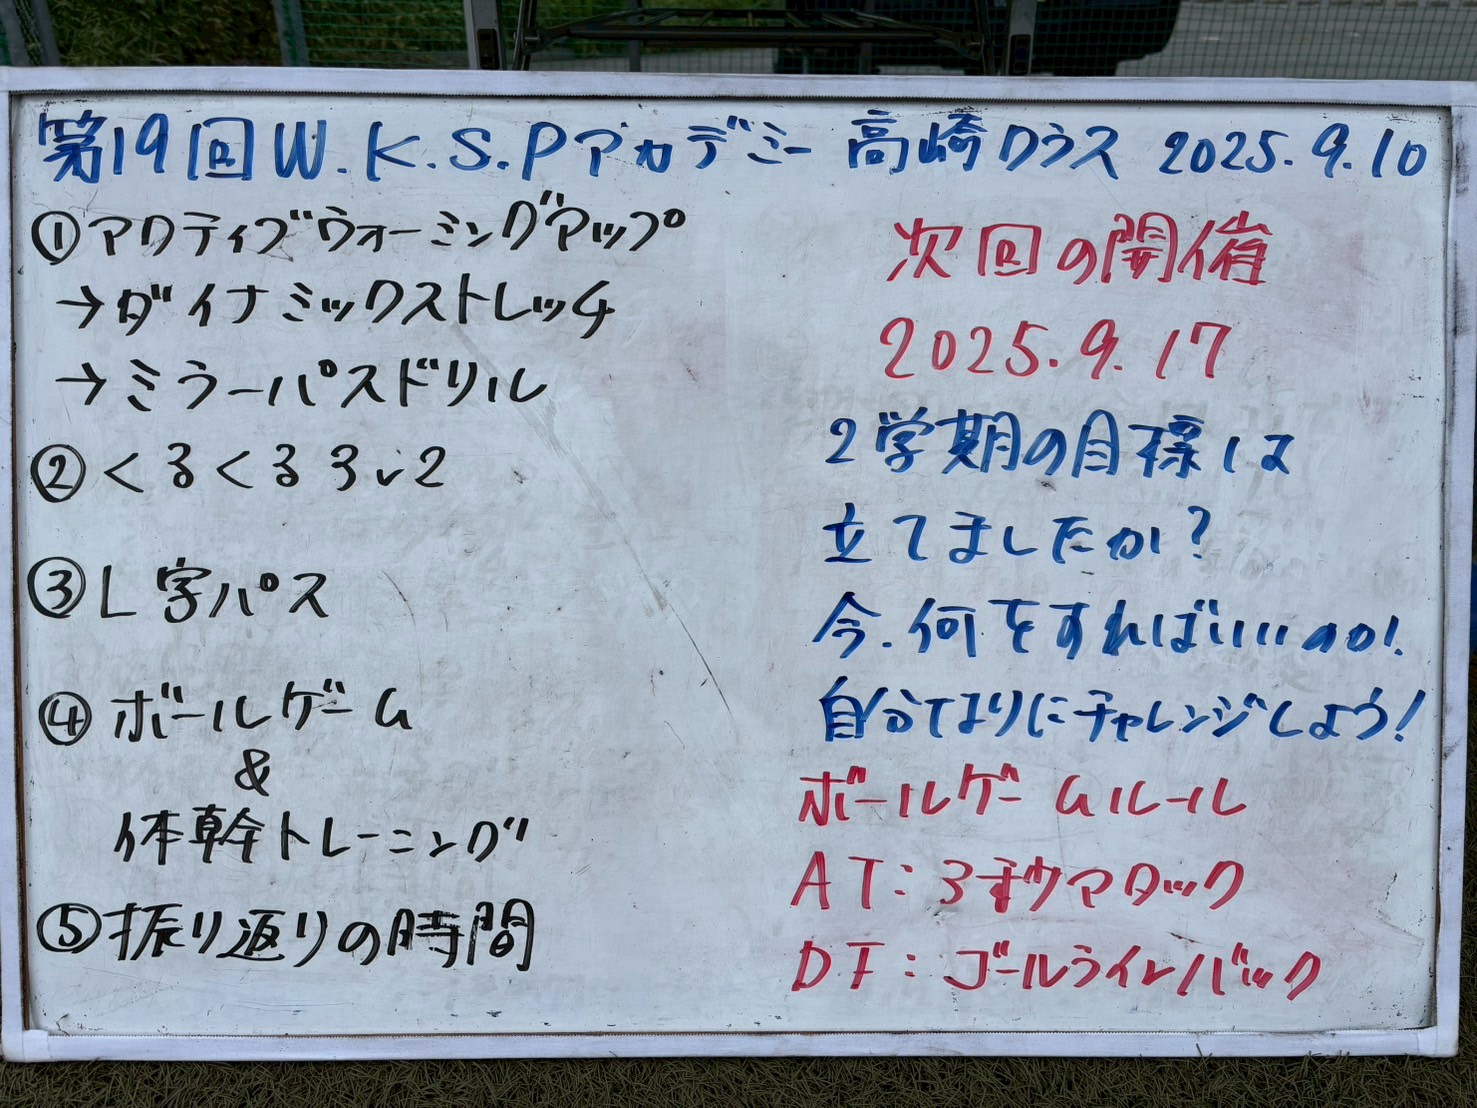 第19回W.K.S.Pアカデミー 高崎クラス 2025.9.10
①アクティブウォーミングアップ
→ダイナミックストレッチ
→ミラーパスドリル
②くるくる3v2
③L字パス
④ボールゲーム
&
体幹トレーニング
⑤振り返りの時間
次回の開催
2025.9.17
2学期の目標は
立てましたか?
今.何をすればいいのか!
自分なりにチャレンジしよう!
ボールゲームルール
AT:3 アタック
DF:ゴールラインバック